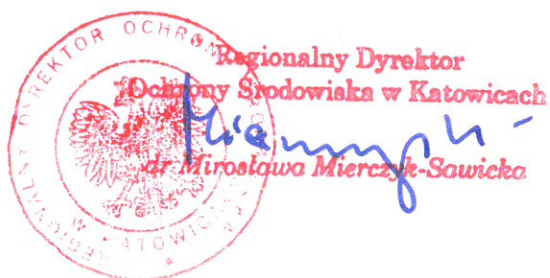 REGIONALNY DYREKTOR OCHRONY
W KATOWICACH
Regionalny Dyrektor
Ochrony Środowiska w Katowicach
dr Mirosława Mierczyk-Sawicka